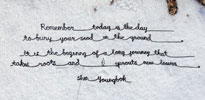 Remember today is the day
to bury your seed in the ground
It is the beginning of a long journey that
takes roots and sprouts new leaves